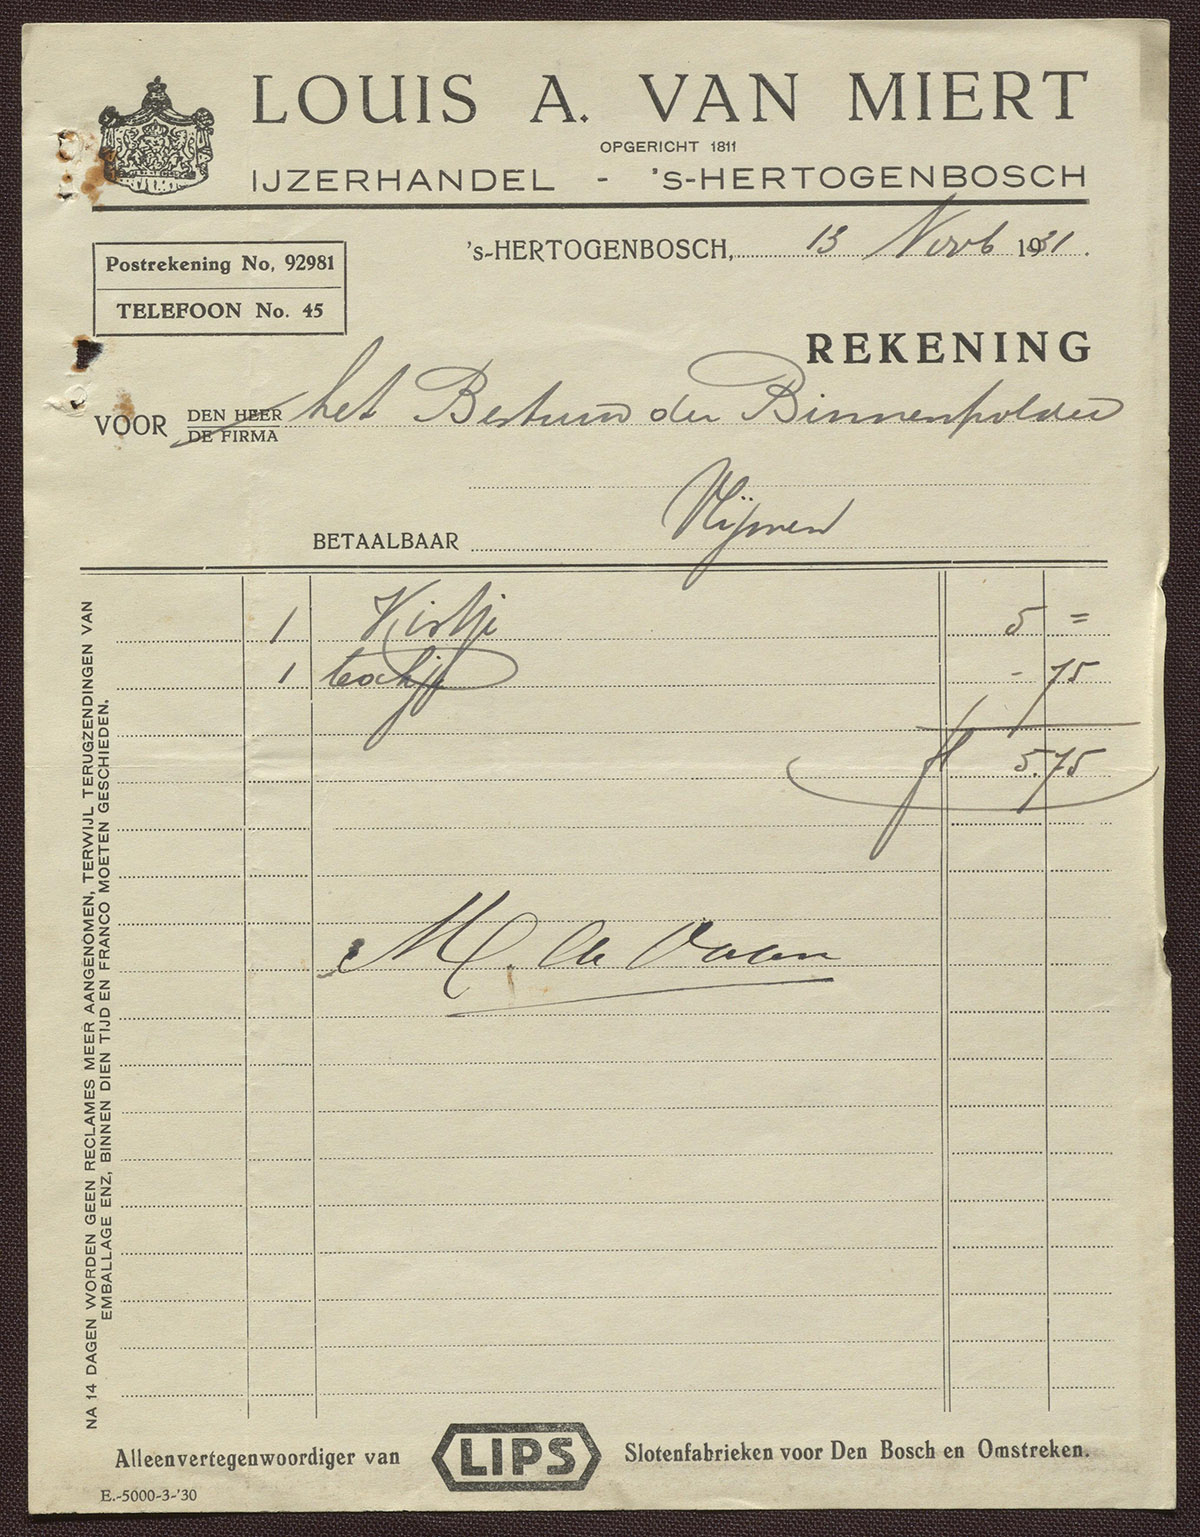 LOUIS A. VAN MIERT
OPGERICHT 1811
IJZERHANDEL - 's-HERTOGENBOSCH
Postrekening No, 92981
TELEFOON No. 45
's-HERTOGENBOSCH, 13 Novb 1931.
REKENING
VOOR DEN HEER het Bestuur der Binnenpolder
DE FIRMA
Vlijmen
BETAALBAAR
1 Kistje 5 =
1 - 75
fl 5.75
M. de
NA 14 DAGEN WORDEN GEEN RECLAMES MEER AANGENOMEN, TERWIJL TERUGZENDINGEN VAN
EMBALLAGE ENZ, BINNEN DIEN TIJD EN FRANCO MOETEN GESCHIEDEN.
Alleenvertegenwoordiger van LIPS Slotenfabrieken voor Den Bosch en Omstreken.
E.-5000-3-'30